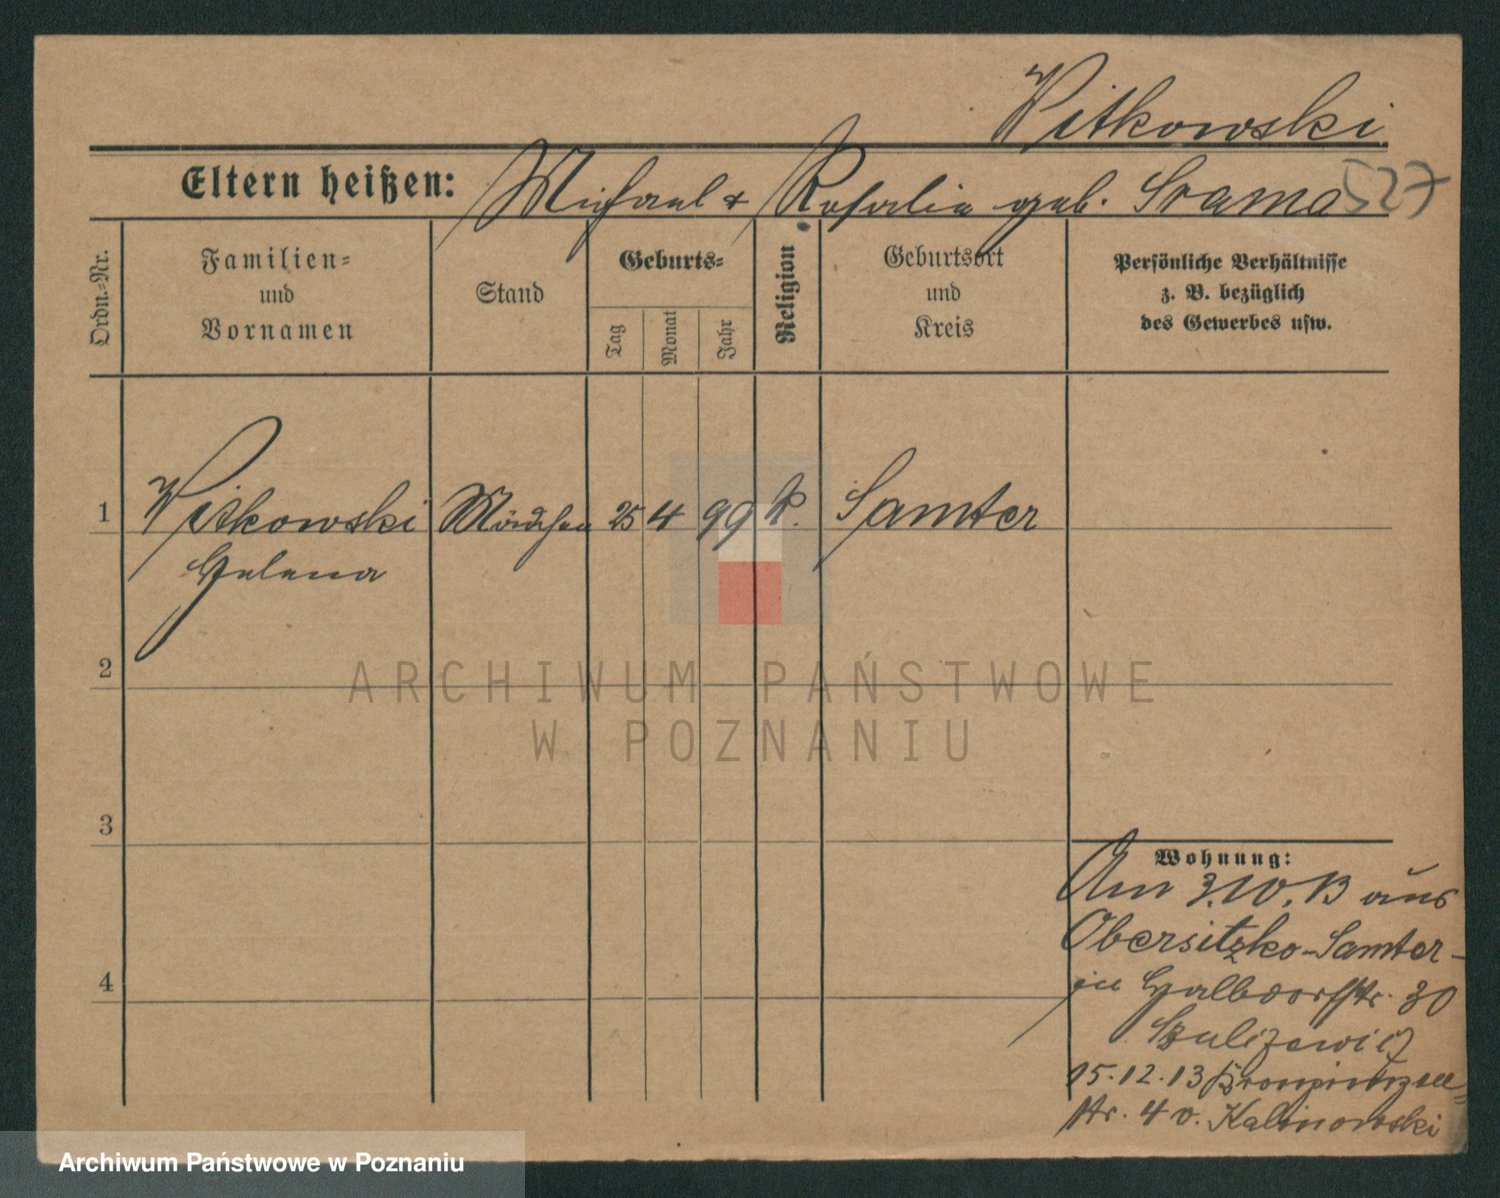 Witkowski.
Eltern heißen: Michael & Rosalia geb. Srama 527
Ordn.-Nr.
Familien- und Vornamen
Stand
Geburts-
Tag
Monat
Jahr
Religion
Geburtsort und Kreis
Persönliche Verhältnisse
z. B. bezüglich
des Gewerbes usw.
1 Witkowski Mädchen 25 4 99 k. Samter
Helena
2
ARCHIWUM PAŃSTWOWE
W POZNANIU
3
Wohnung:
Am 3.10.13 aus
Obersitzko-Samter-
in Halbdorfstr. 30
15.12.13 Kronprinzen-
str. 4 v. Kalinowski
4
Archiwum Państwowe w Poznaniu